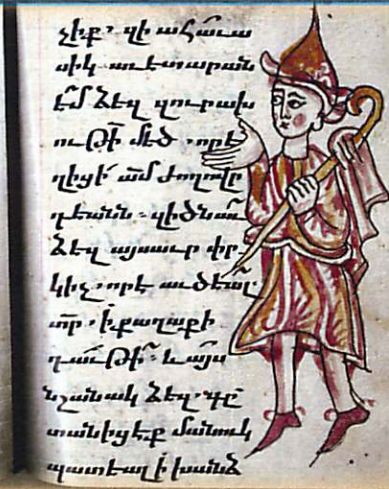 չիք. զի ահաւա
սիկ աւետարան
եմ ձեզ զուրախ
ութի՟ մեծ. որե
ղիցի ամ՟ ժողովր
դեանն. զի ծնաւ
ձեզ այսաւր փր
կիչ. որէ աւծեալ
տր՟. ի քաղաքի
դաւթի. և այս
նշանակ ձեզ. գը
տանիցէք մանուկ
պատեալ ի խանձ